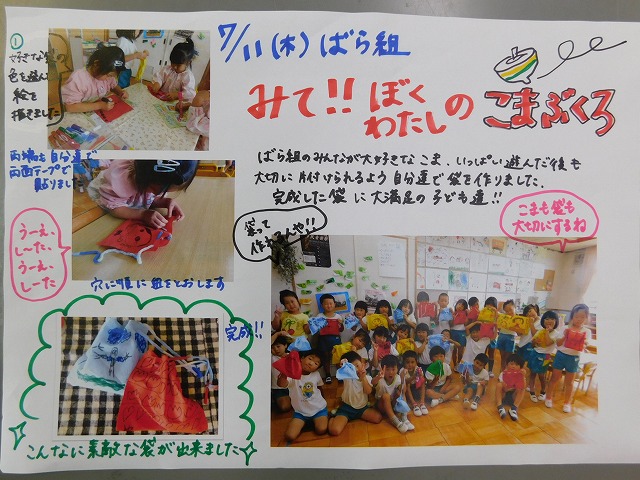 7/11(木) ばら組
みて!! ぼく
わたしの
こまぶくろ
ばら組のみんなが大好きな こま。いっぱい遊んだ後も
大切に片付けられるよう 自分達で袋を作りました。
完成した袋に大満足の子ども達!!
①
好きな袋の
色を選んで
絵を
描きました
両端も自分達で
両面テープで
貼りました
うーえ、
しーた、
うーえ、
しーた
穴に順に紐をとおします
袋って
作れるんや!!
こまも袋も
大切にするね
完成!!
こんなに素敵な袋が出来ました